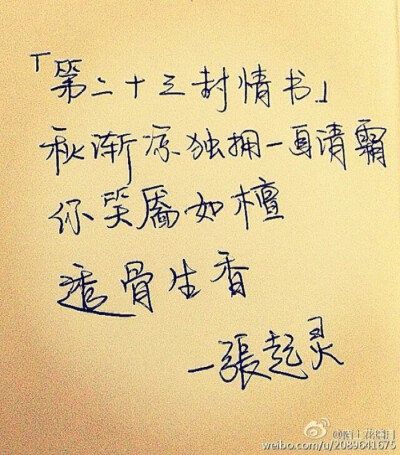 「第二十三封情书」
秋渐凉独拥一肩清霜
你笑靥如檀
透骨生香
一張起灵
weibo.com/u/2089641675